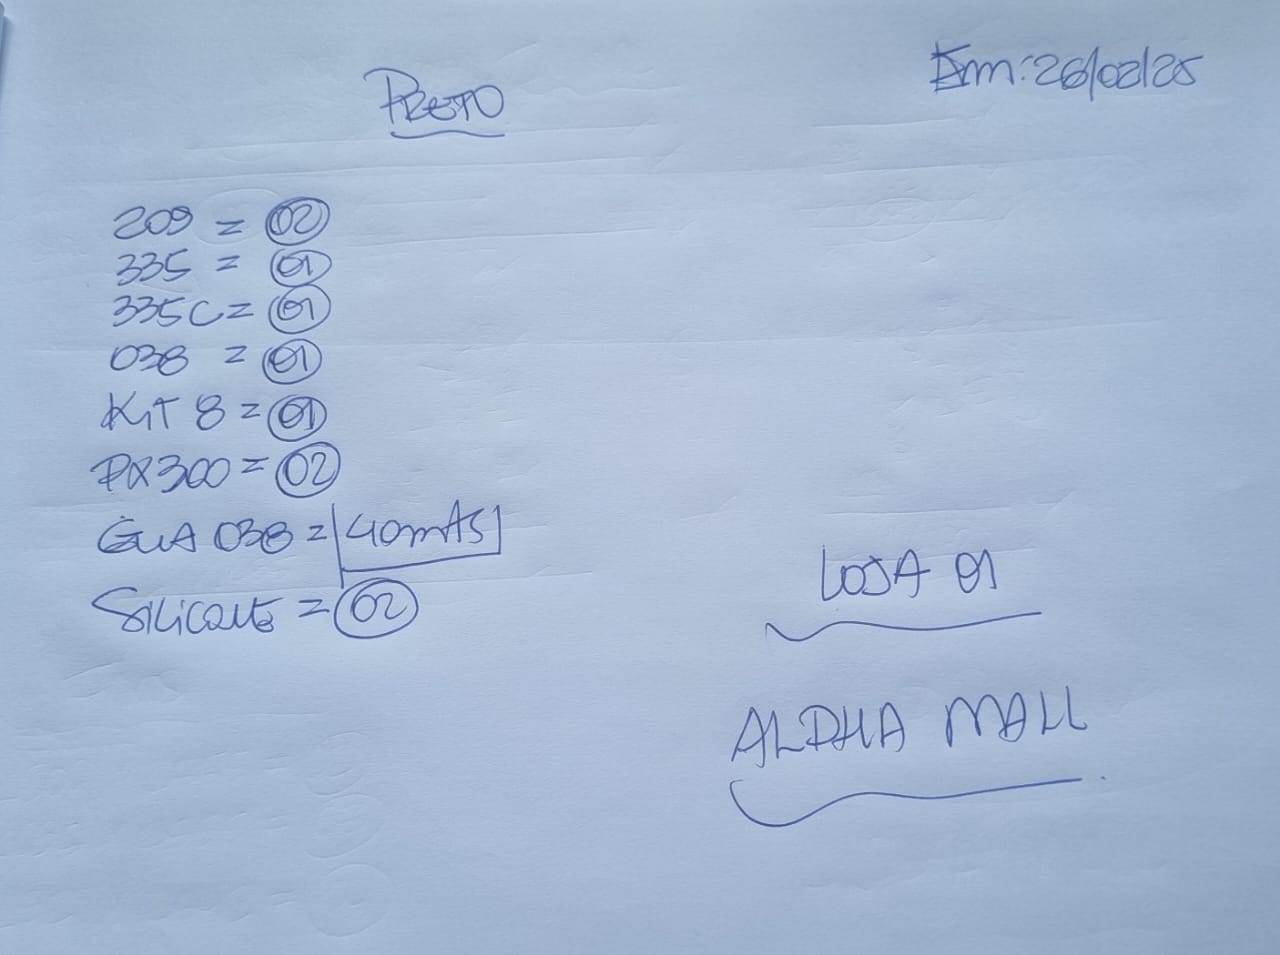 Em: 26/02/25
PRETO
209 = 02
335 = 01
335C = 01
038 = 01
KIT 8 = 01
PX300 = 02
GUA 038 = 40mts
SILICONE = 02
LOJA 01
ALPHA MALL